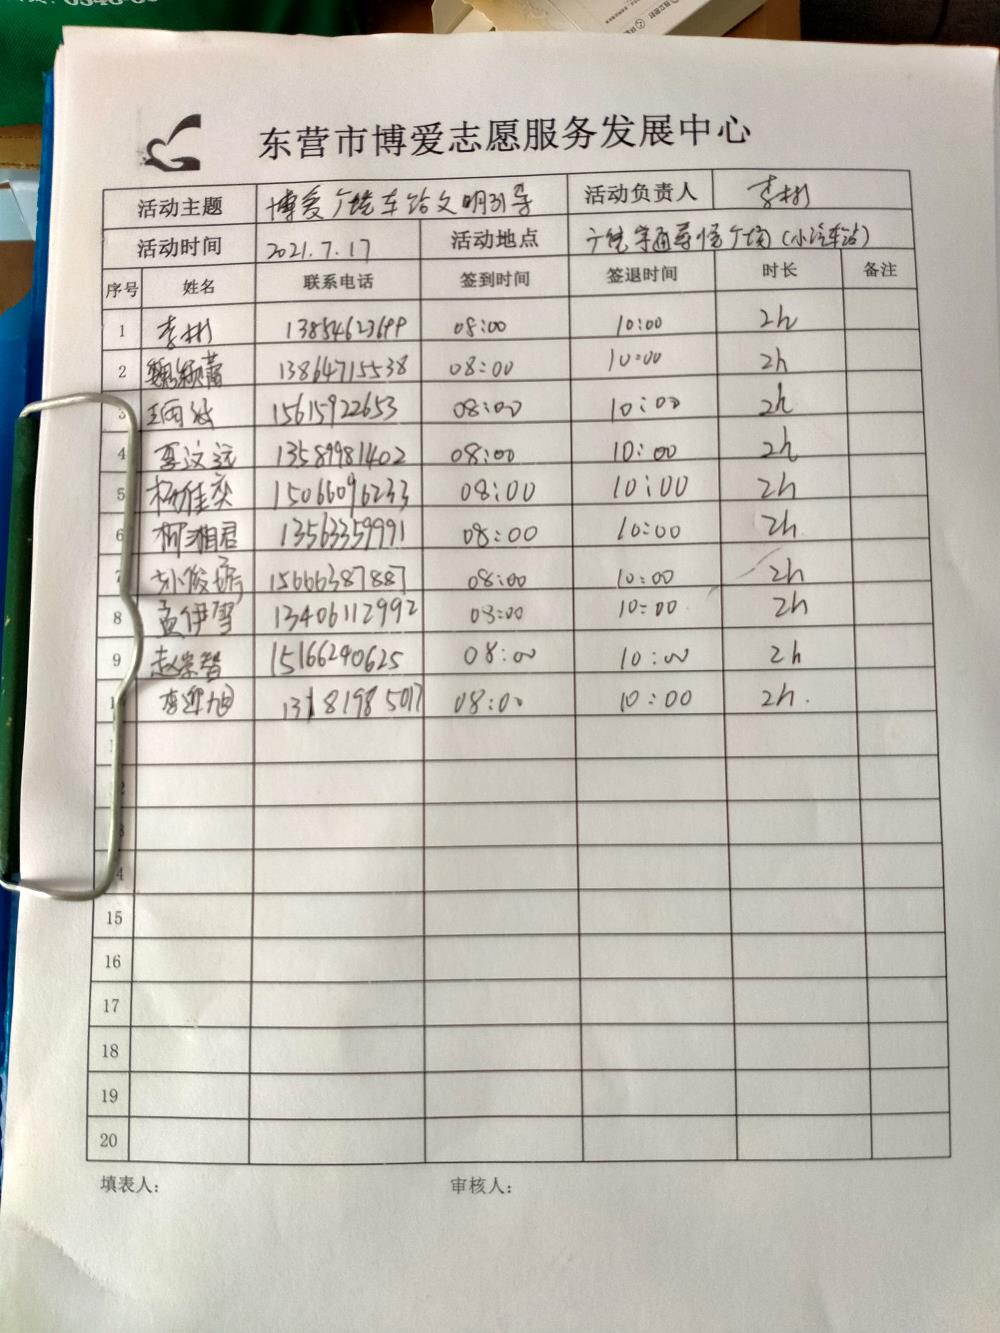 东营市博爱志愿服务发展中心
活动主题 博爱广饶车站文明引导 活动负责人 李彬
活动时间 2021.7.17 活动地点 广饶 (小汽车站)
序号 姓名 联系电话 签到时间 签退时间 时长 备注
1 李彬 13854623699 08:00 10:00 2h
2 魏颖 13864715538 08:00 10:00 2h
3 15615922653 08:00 10:00 2h
4 汶远 13589981402 08:00 10:00 2h
5 杨佳奕 15066096233 08:00 10:00 2h
6 柯湘君 13563359991 08:00 10:00 2h
7 孙俊 15666387887 08:00 10:00 2h
8 孟伊雪 13406112992 08:00 10:00 2h
9 赵崇智 15166240625 08:00 10:00 2h
李迎旭 13181985017 08:00 10:00 2h.
15
16
17
18
19
20
填表人： 审核人：